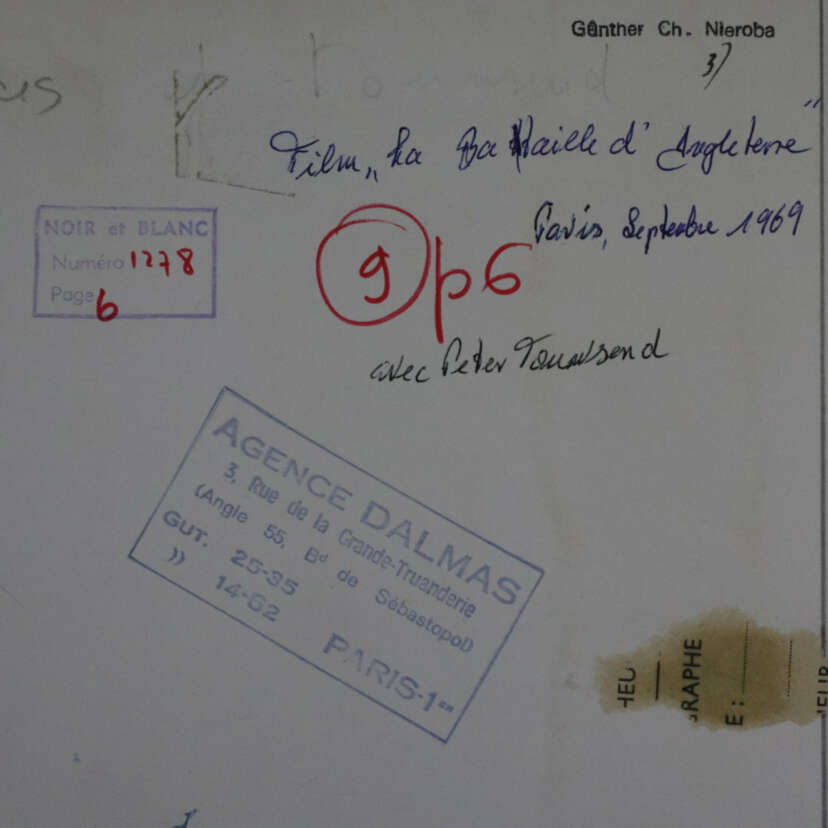 Günther Ch. Nieroba
3)
us et Townsend
Film „La Bataille d'Angleterre"
Paris, Septembre 1969
NOIR et BLANC
Numéro 1278
Page 6
9 p6
avec Peter Townsend
AGENCE DALMAS
3, Rue de la Grande-Truanderie
(Angle 55, Bd de Sébastopol)
GUT. 25-35
» 14-62
PARIS-1er
HEU
GRAPHE
E :
IEUR